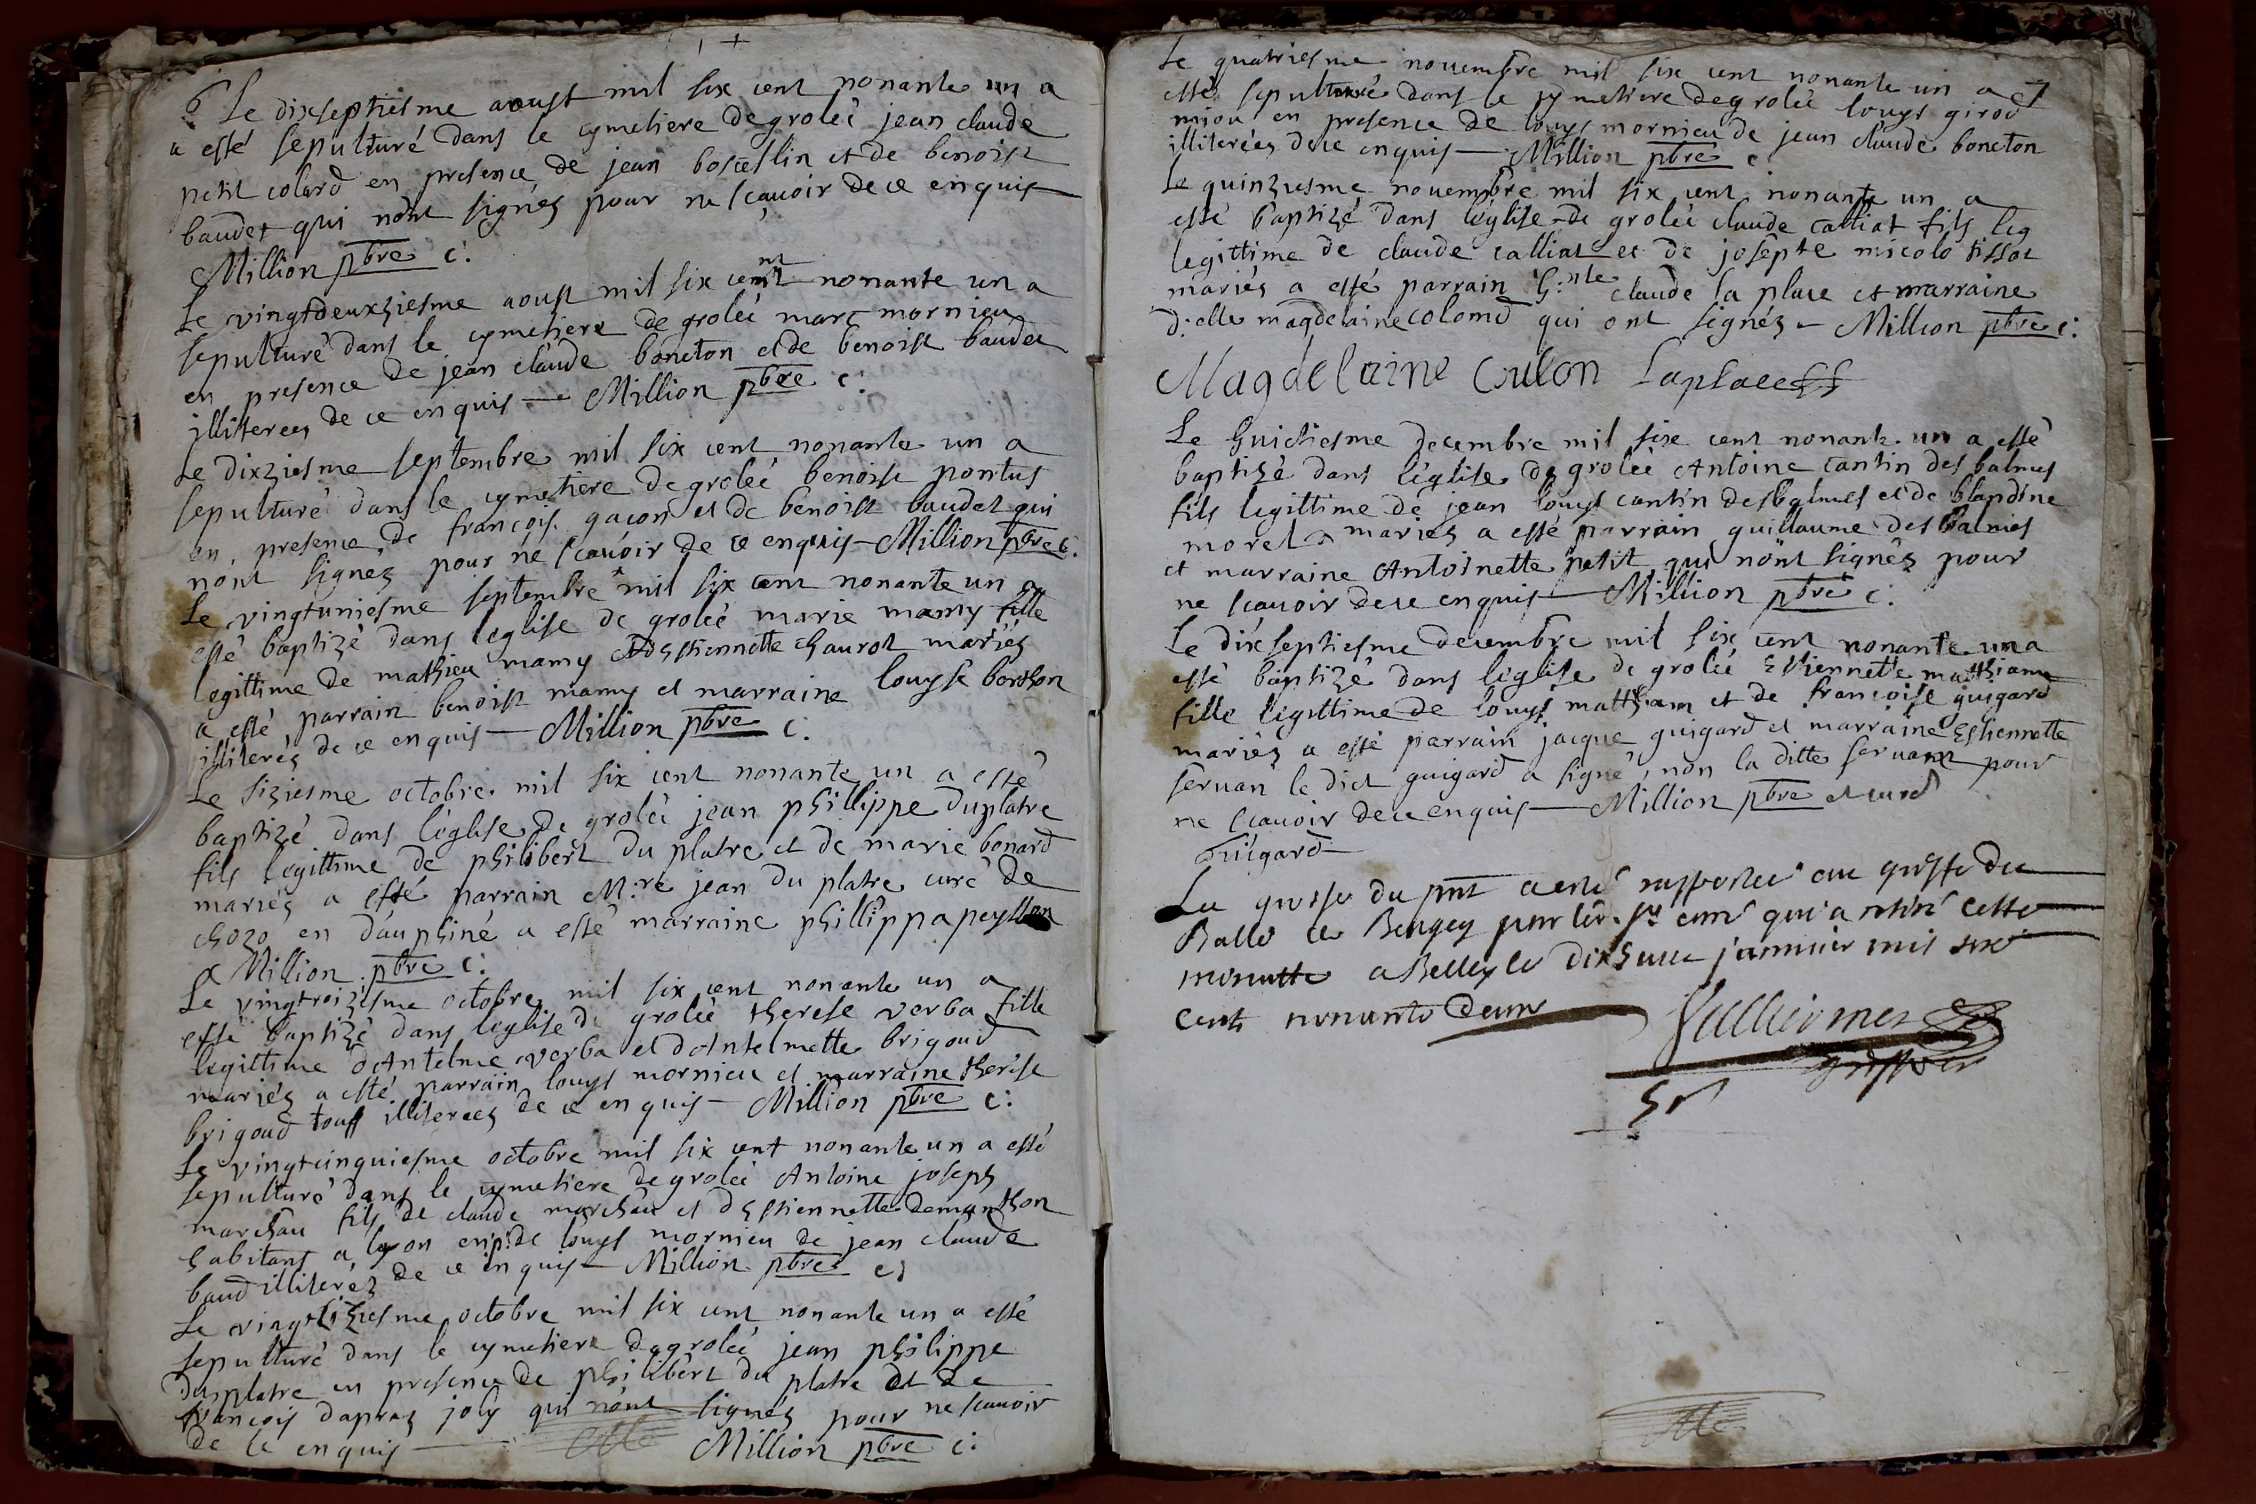 6 Le dixseptiesme aoust mil six cent nonante un a
a esté sepulturé dans le cymetiere de groleé jean claude
petit colard en presence de jean bosceslin et de benoist
baudet qui nònt signés pour ne scauoir de ce enquis
Million pbre c:
Le vingtdeuxziesme aoust mil six cent nonante un a
sepulturé dans le cymetiere de groleé marc mornieu
en presence de jean claude boncton et de benoist baudet
illiterees de ce enquis — Million pbre c:
Le dixziesme septembre mil six cent nonante un a
sepulturé dans le cymetiere de groleé benoist pontus
en presence de françois gacon et de benoist baudet qui
nònt signez pour ne scauoir de ce enquis — Million pbre c:
Le vingtuniesme septembre mil six cent nonante un a
esté baptizé dans leglise de groleé marie mamy fille
legittime de mathieu mamy et destiennette chaurot mariés
a esté parrain benoist mamy et marraine louyse borthon
illiterés de ce enquis — Million pbre c:
Le siziesme octobre mil six cent nonante un a esté
baptizé dans l'eglise de groleé jean phillippe duplatre
fils legittime de philibert du platre et de marie bonard
mariés a esté parrain M:re jean du platre curé de
chozo en dauphiné a esté marraine phillippa
Million pbre c:
Le vingtroizisme octobre mil six cent nonante un a
esté baptizé dans leglise de groleé therese verba fille
legittime d'Antelme verba et d'Antelmette brigoud
mariés a esté parrain louys mornieu et marraine therese
brigoud touss illiterees de ce enquis — Million pbre c:
Le vingtcinquiesme octobre mil six cent nonante un a esté
sepulturé dans le cymetiere de groleé Antoine joseph
marchau fils de claude marchau et destiennette demanthon
habitans a lyon en p: de louys mornieu de jean claude
baud illiteréz de ce enquis — Million pbre c:
Le vingtsiziesme octobre mil six cent nonante un a esté
sepulturé dans le cymetiere de groleé jean philippe
du platre en presence de philibert du platre et de
francois dapraz joly qui nònt signez pour ne scauoir
de ce enquis — Million pbre c:
Le quatriesme nouembre mil six cent nonante un a 7
esté sepulturé dans le cymetiere de groleé louys girod
miou en presence de louys mornieu de jean claude boncton
illiterées de ce enquis — Million pbre c:
Le quinziesme nouembre mil six cent nonante un a
esté baptizé dans léglise de groleé claude calliat fils leg
legittime de claude calliat et de josepte micolo tissot
mariés a esté parrain claude la place et marraine
d:elle magdelaine colomd qui ont signéz — Million pbre c:
Magdelaine Coulon Laplace
Le huictiesme decembre mil six cent nonante un a esté
baptizé dans léglise de groleé Antoine cantin des balmes
fils legittime de jean louys cantin desbalmes et de blandine
morel mariés a esté parrain guillaume des balmes
et marraine Antoinette petit qui nònt signés pour
ne scauoir de ce enquis — Million pbre c:
Le dixseptiesme decembre mil six cent nonante un a
esté baptizé dans léglise de groleé Estiennette matthiam
fille legittime de louys matthiam et de françoise guigard
mariéz a esté parrain jacque guigard et marraine Estiennette
seruan le dict guigard a signé, non la ditte seruant pour
ne scauoir de ce enquis — Million pbre et curé
Guigard
La grosse du pnt a esté rapportée au greffe du
Balle de Beugey par led. sr curé qui a retiré cette
minutte a Belley le dixhuict januier mil six
cents nonante deux
greffier